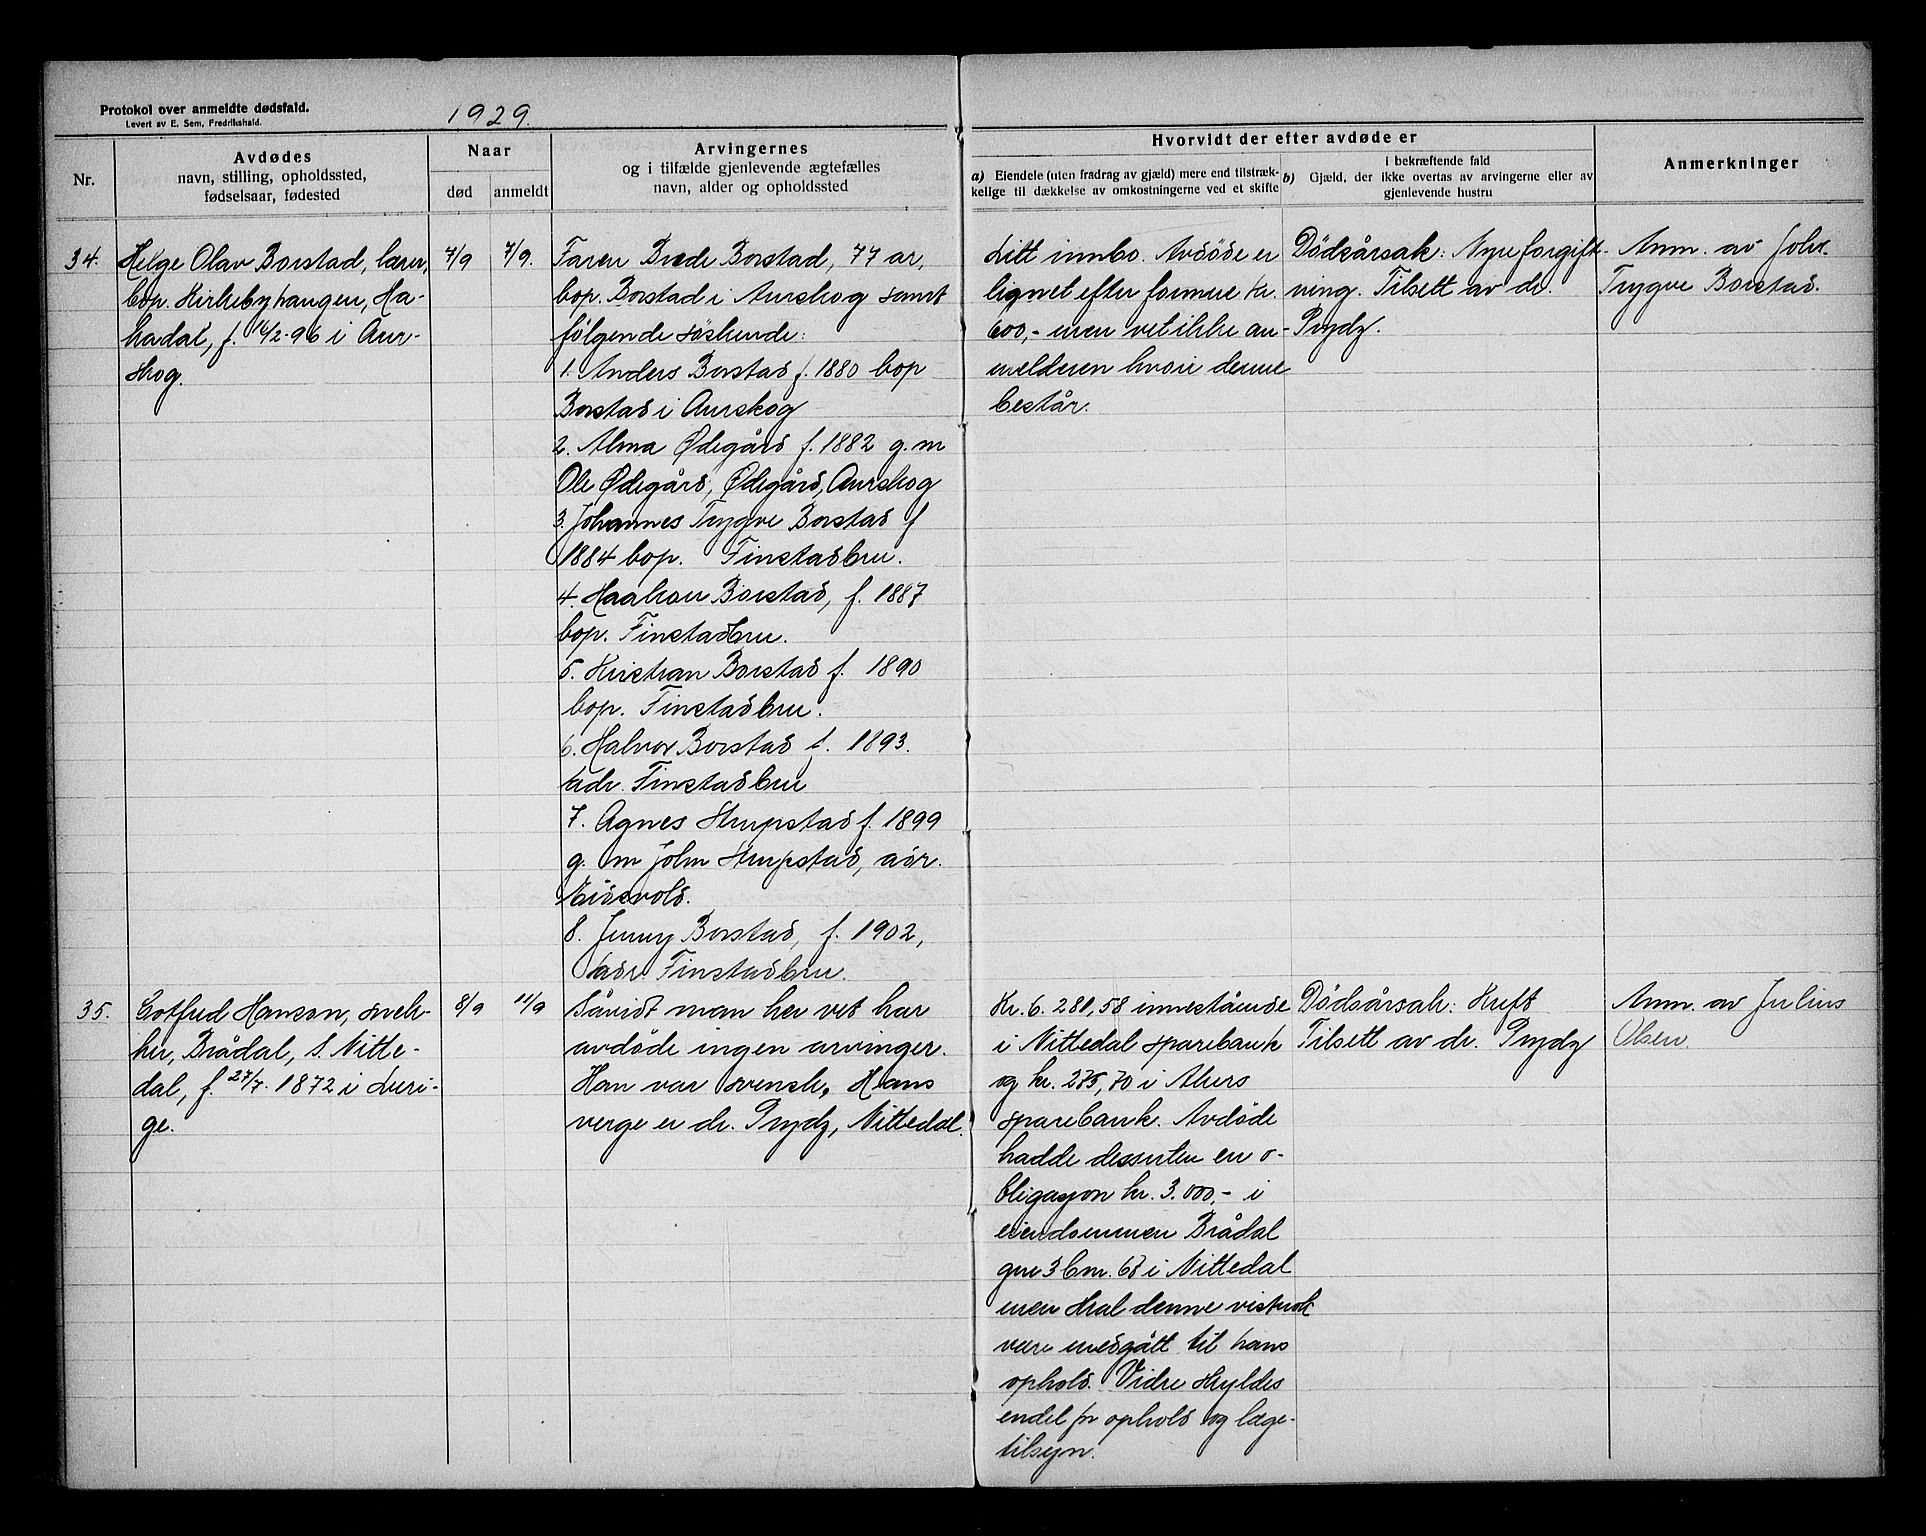 Protokol over anmeldte dødsfald.
Levert av E. Sem, Fredrikshald.
1929.
Nr.
Avdødes
navn, stilling, opholdssted,
fødselsaar, fødested
Naar
død
anmeldt
Arvingernes
og i tilfælde gjenlevende ægtefælles
navn, alder og opholdssted
Hvorvidt der efter avdøde er
a) Eiendele (uten fradrag av gjæld) mere end tilstræk-
kelige til dækkelse av omkostningerne ved et skifte
i bekræftende fald
b) Gjæld, der ikke overtas av arvingerne eller av
gjenlevende hustru
Anmerkninger
34.
Helge Olav Borstad, lærer,
bop. Kirkebyhaugen, Ha-
kadal, f. 14/2-96 i Aur-
skog.
7/9
7/9.
Faren Brede Borstad, 77 ar,
bop. Borstad i Aurskog samt
følgende søskende:
1. Anders Borstad f. 1880 bop
Borstad i Aurskog
2. Alma Ødegård f. 1882 g.m
Ole Ødegård, Ødegård, Aurskog
3. Johannes Trygve Borstad f
1884 bop. Finstadbru.
4. Haakon Borstad, f. 1887
bop. Finstadbru.
5. Kristian Borstad f. 1890
bop. Finstadbru.
6. Halvor Borstad f. 1893.
adr. Finstadbru
7. Agnes Skrepstad f. 1899
g. m John Skrepstad, adr.
Eidsvold.
8. Jenny Borstad, f. 1902,
adr. Finstadbru.
Litt innbo. Avdøde er
lignet efter formue kr.
600,- men vet ikke an-
melderen hvori denne
består.
Dødsårsak: Nyreforgift-
ning. Tilsett av dr.
Prydz.
Anm. av Johs.
Trygve Borstad.
35.
Gotfred Hanson, snek-
ker, Brådal, S. Nitte-
dal, f. 27/7. 1872 i Sveri-
ge.
8/9
11/9
Såvidt man her vet har
avdøde ingen arvinger.
Han var svensk. Hans
verge er dr. Prydz, Nittedal.
Kr. 6.281,58 innestående
i Nittedal sparebank
og kr. 275,70 i Akers
sparebank. Avdøde
hadde dessuten en o-
bligasjon kr. 3.000,- i
eiendommen Brådal
gnr 3 bnr. 68 i Nittedal
men skal denne vistnok
være medgått til hans
ophold. Videre skyldes
endel for ophold og læge-
tilsyn.
Dødsårsak: Kreft
Tilsett av dr. Prydz
Anm. av Julius
Olsen.